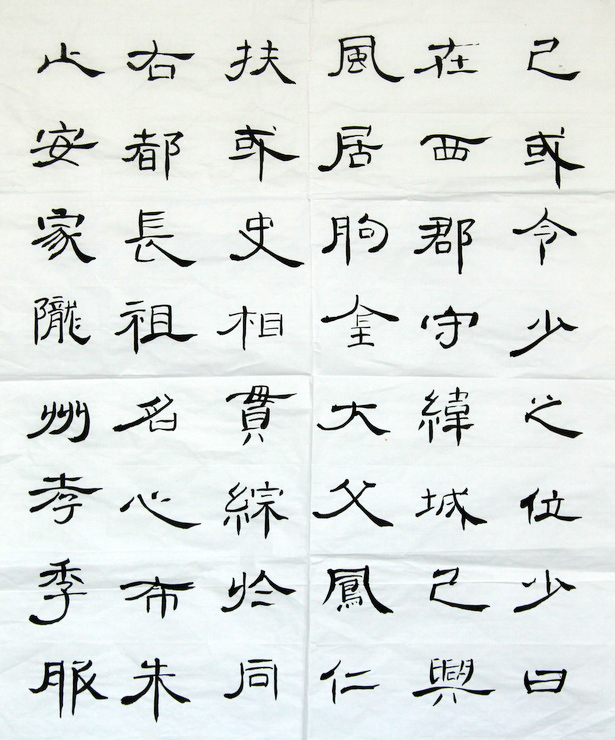 己或令少之位少曰
在西郡守緯城己興
風居朐全大父鳳仁
扶或史相貫綜於同
右都長祖名心布朱
止安家隴州孝季服